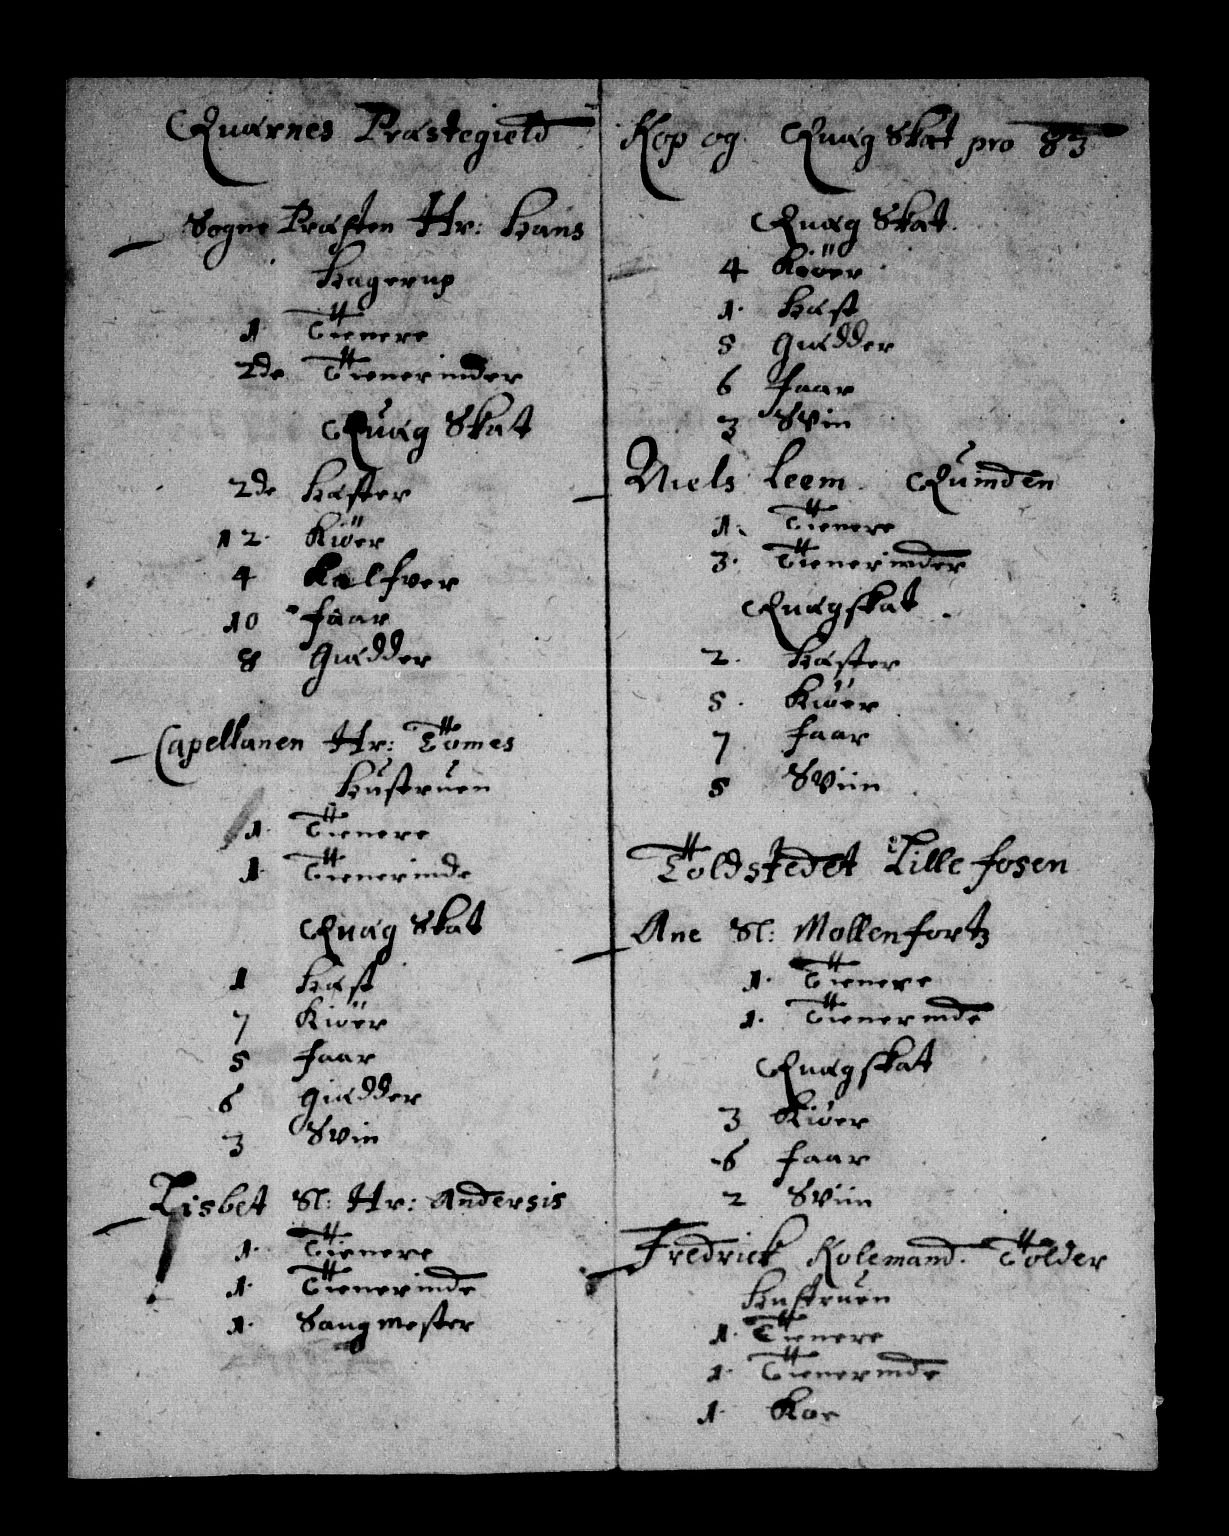 Quærnes Præstegield
Sogne Præsten Hr: Hans
Hagerup
1 Tienere
2de Tienerinder
Quæg Skat
2de Hæster
12. Kiöer
4 Kalfver
10 faar
8 Giædder
Capellanen Hr: Tömes
Hustruen
1. Tienere
1. Tienerinde
Quæg Skat
1 Hæst
7 Kiöer
5 faar
6 Giædder
3 Svin
Lisbet Sl: Hr: Andersis
1. Tienere
1. Tienerinde
1. Sangmester
Kop og Quæg Skat pro 83
Quæg Skat.
4 Kiöer
1. Hæst
5 Giædder
6 faar
3 Svin
Niels Leem Quinden
1. Tienere
3. Tienerinder
Quægskat
2. Hæster
5. Kiöer
7 faar
5 Sviin
Toldstedet Lille fosen
Ane Sl: Mollenfortz
1. Tienere
1. Tienerinde
Quægskat
3 Kiöer
6 faar
2 Sviin
Fredrick Kolemand. Tolder
Hustruen
1. Tienere
1. Tienerinde
1. Koe